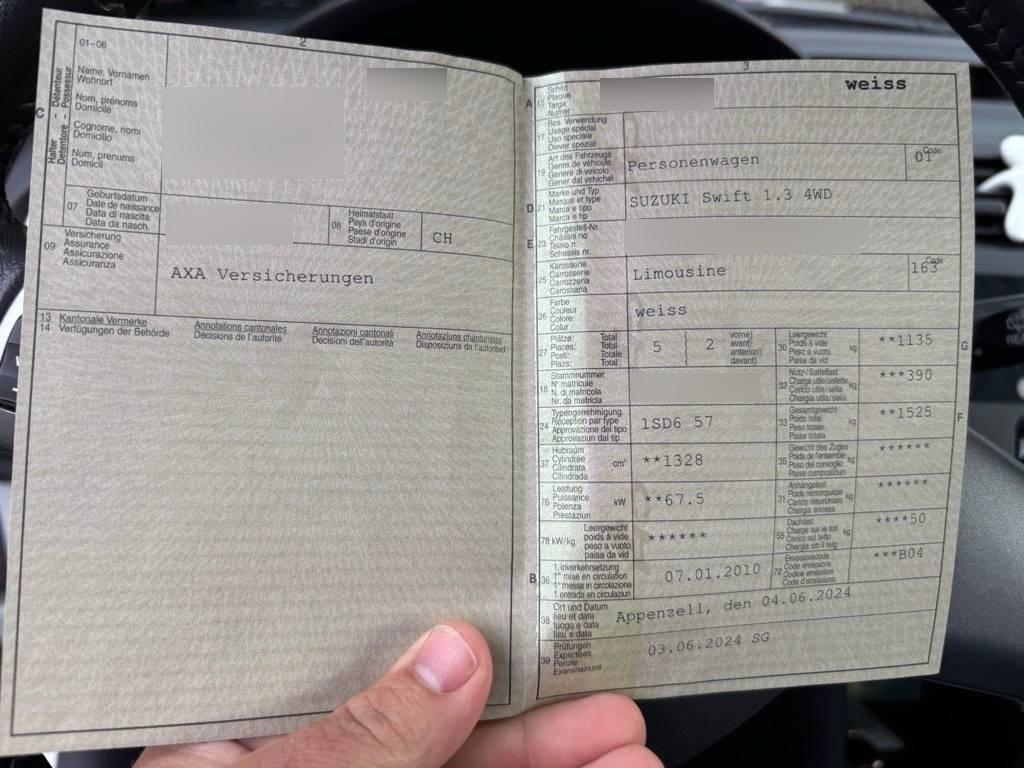 2
01-06
Name, Vornamen
Wohnort
Nom, prénoms
Domicile
Cognome, nomi
Domicilio
Num, prenums
Domicil
C
Halter - Détenteur
Detentore - Possessur
07
Geburtsdatum
Date de naissance
Data di nascita
Data da nasch.
08
Heimatstaat
Pays d'origine
Paese d'origine
Stadi d'origin
CH
09
Versicherung
Assurance
Assicurazione
Assicuranza
AXA Versicherungen
13 Kantonale Vermerke
14 Verfügungen der Behörde
Annotations cantonales
Décisions de l'autorité
Annotazioni cantonali
Decisioni dell'autorità
Annotaziuns chantunalas
Disposiziuns da l'autoritad
3
A
15
Schild
Plaque
Targa
Numer
weiss
17
Bes. Verwendung
Usage spécial
Uso speciale
Diever spezial
19
Art des Fahrzeugs
Genre de véhicule
Genere di veicolo
Gener dal vehichel
Personenwagen
Code
01
D
21
Marke und Typ
Marque et type
Marca e tipo
Marca e tip
SUZUKI Swift 1.3 4WD
E
23
Fahrgestell-Nr.
Châssis no
Telaio n.
Schassis nr.
25
Karosserie
Carrosserie
Carrozzeria
Carossaria
Limousine
Code
163
26
Farbe
Couleur
Colore
Colur
weiss
27
Plätze: Total
Places: Total
Posti: Totale
Plazs: Total
5
2
vorne)
avant)
anteriori)
davant)
30
Leergewicht
Poids à vide
Peso a vuoto
Paisa da vid
kg
**1135
G
18
Stammnummer
N° matricule
N. di matricola
Nr. da matricla
32
Nutz-/Sattellast
Charge utile/sellette
Carico utile/sella
Chargia utila/sella
kg
***390
24
Typengenehmigung
Réception par type
Approvazione del tipo
Approvaziun dal tip
1SD6 57
33
Gesamtgewicht
Poids total
Peso totale
Paisa totala
kg
**1525
F
37
Hubraum
Cylindrée
Cilindrata
Cilindrada
cm³
**1328
35
Gewicht des Zuges
Poids de l'ensemble
Peso del convoglio
Paisa cumposiziun
kg
******
76
Leistung
Puissance
Potenza
Prestaziun
kW
**67.5
31
Anhängelast
Poids remorquable
Carico rimorchiato
Chargia annexa
kg
******
78 kW/kg
Leergewicht
poids à vide
peso a vuoto
paisa da vid
******
55
Dachlast
Charge sur le toit
Carico sul tetto
Chargia sin il tetg
kg
****50
B
36
1. Inverkehrsetzung
1re mise en circulation
1a messa in circolazione
1. entrada en circulaziun
07.01.2010
72
Emissionscode
Code émissions
Codice emissioni
Code d'emissiuns
***B04
38
Ort und Datum
lieu et date
luogo e data
lieu e data
Appenzell, den 04.06.2024
39
Prüfungen
Expertises
Perizie
Examinaziuns
03.06.2024 SG